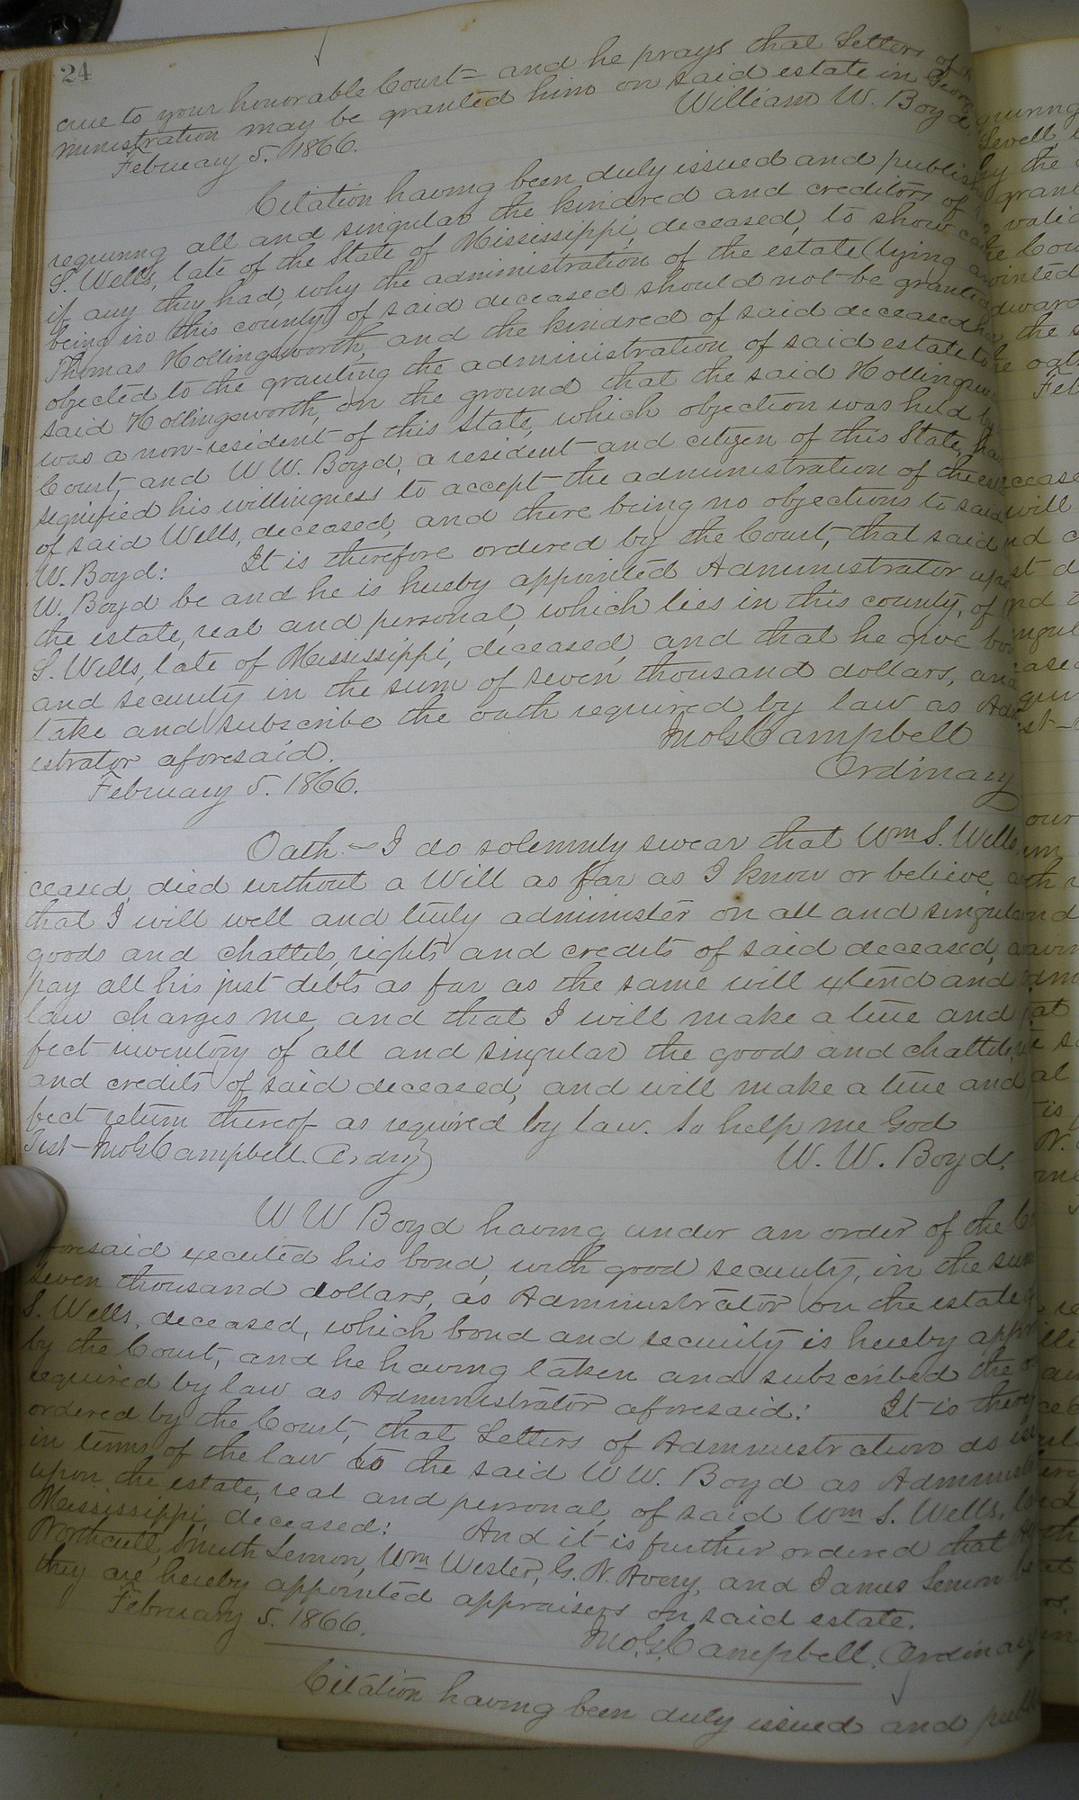 24
crue to your honorable Court and he prays that Letters of
ministration may be granted him on said estate in Geor
February 5. 1866. William W. Boyd
Citation having been duly issued and publish
requiring all and singular the kindred and creditors of
S. Wells, late of the State of Mississippi, deceased, to show ca
if any they had, why the administration of the estate (lying a
being in this county) of said deceased should not be granted
Thomas Hollingsworth, and the kindred of said deceased ha
objected to the granting the administration of said estate to
said Hollingsworth, on the ground that the said Hollingsw
was a non-resident of this State, which objection was held by
Court, and W W. Boyd, a resident and citizen of this State, hav
signified his willingness to accept the administration of the es
of said Wells, deceased, and there being no objections to said
W. Boyd: It is therefore ordered by the Court, that said
W. Boyd be and he is hereby appointed Administrator upo
the estate, real and personal, which lies in this county, of
S. Wells, late of Mississippi, deceased, and that he give bo
and security in the sum of seven thousand dollars, and
take and subscribe the oath required by law as Ad
istrator aforesaid. Jno G. Campbell
February 5. 1866. Ordinary
Oath — I do solemnly swear that Wm S. Wells
ceased, died without a Will as far as I know or believe,
that I will well and truly administer on all and singula
goods and chattels, rights and credits of said deceased, a
pay all his just debts as far as the same will extend and
law charges me, and that I will make a true and
fect inventory of all and singular the goods and chattels,
and credits of said deceased, and will make a true and
fect return thereof as required by law. So help me God
Test Jno G. Campbell. Ordry} W. W. Boyd.
W W Boyd having under an order of the Co
aforesaid executed his bond, with good security, in the sum
seven thousand dollars, as Administrator on the estate
S. Wells, deceased, which bond and security is hereby appr
by the Court, and he having taken and subscribed the o
required by law as Administrator aforesaid: It is there
ordered by the Court, that Letters of Administration do iss
in terms of the law to the said W W. Boyd as Administ
upon the estate, real and personal, of said Wm S. Wells, la
Mississippi, deceased: And it is further ordered that
Northcutt, Smith Lemon, Wm Wester, G. N. Avery, and James Lemon be
they are hereby appointed appraisers on said estate.
February 5. 1866. Jno. G. Campbell. Ordinary
Citation having been duly issued and publi